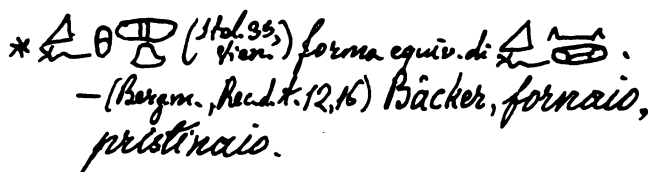 * (Stol. 33, Vien.) forma equiv. di .
— (Bergm., Rec. d. t. 12, 16) Bäcker, fornaio,
pristinaio.